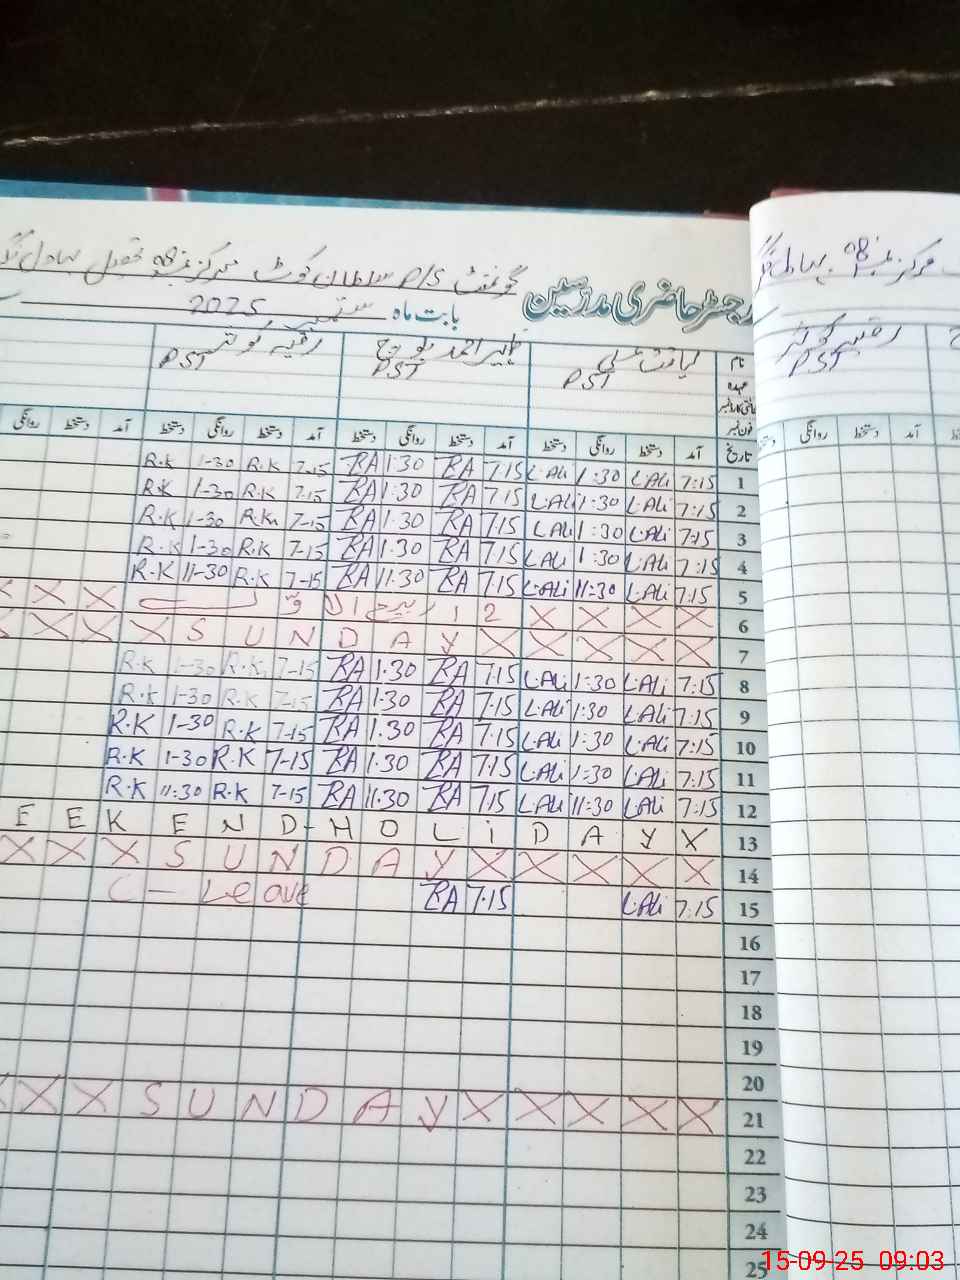 گورنمنٹ P/S سلطان کوٹ مرکز نمبر 08 تحصیل بہاول
رجسٹر حاضری مدرسین
بابت ماہ ستمبر 2025
نام لیاقت علی احمد بلوچ رقیہ کوثر
عہدہ PST PST PST
فون نمبر
تاریخ آمد دستخط روانگی دستخط آمد دستخط روانگی دستخط آمد دستخط روانگی دستخط آمد دستخط روانگی
1 7:15 L.Ali 1:30 L.Ali 7.15 BA 1.30 BA 7-15 R.K 1-30 R.K
2 7:15 L.Ali 1:30 L.Ali 7.15 BA 1.30 BA 7-15 R.K 1-30 R.K
3 7:15 L.Ali 1:30 L.Ali 7.15 BA 1.30 BA 7-15 R.K 1-30 R.K
4 7:15 L.Ali 1:30 L.Ali 7.15 BA 1.30 BA 7-15 R.K 1-30 R.K
5 7:15 L.Ali 11:30 L.Ali 7.15 BA 11.30 BA 7-15 R.K 11-30 R.K
6 X X X X 12 ربیع الا X X X
7 X X X X X SUNDAY X X X X
8 7:15 L.Ali 1:30 L.Ali 7.15 BA 1.30 BA 7-15 R.K 1-30 R.K
9 7:15 L.Ali 1:30 L.Ali 7.15 BA 1.30 BA 7-15 R.K 1-30 R.K
10 7:15 L.Ali 1:30 L.Ali 7.15 BA 1.30 BA 7-15 R.K 1-30 R.K
11 7:15 L.Ali 1:30 L.Ali 7.15 BA 1.30 BA 7-15 R.K 1-30 R.K
12 7:15 L.Ali 11:30 L.Ali 7.15 BA 11.30 BA 7-15 R.K 11:30 R.K
13 EEK END-HOLiDAY X
14 X X X SUNDAY X X X X X
15 7:15 L.Ali 7.15 BA C-Leave
16
17
18
19
20
21 X X X SUNDAY X X X X X
22
23
24
25
مرکز نمبر 08 بہاولنگر
رقیہ کوثر
PST
آمد دستخط روانگی
15-09-25 09:03